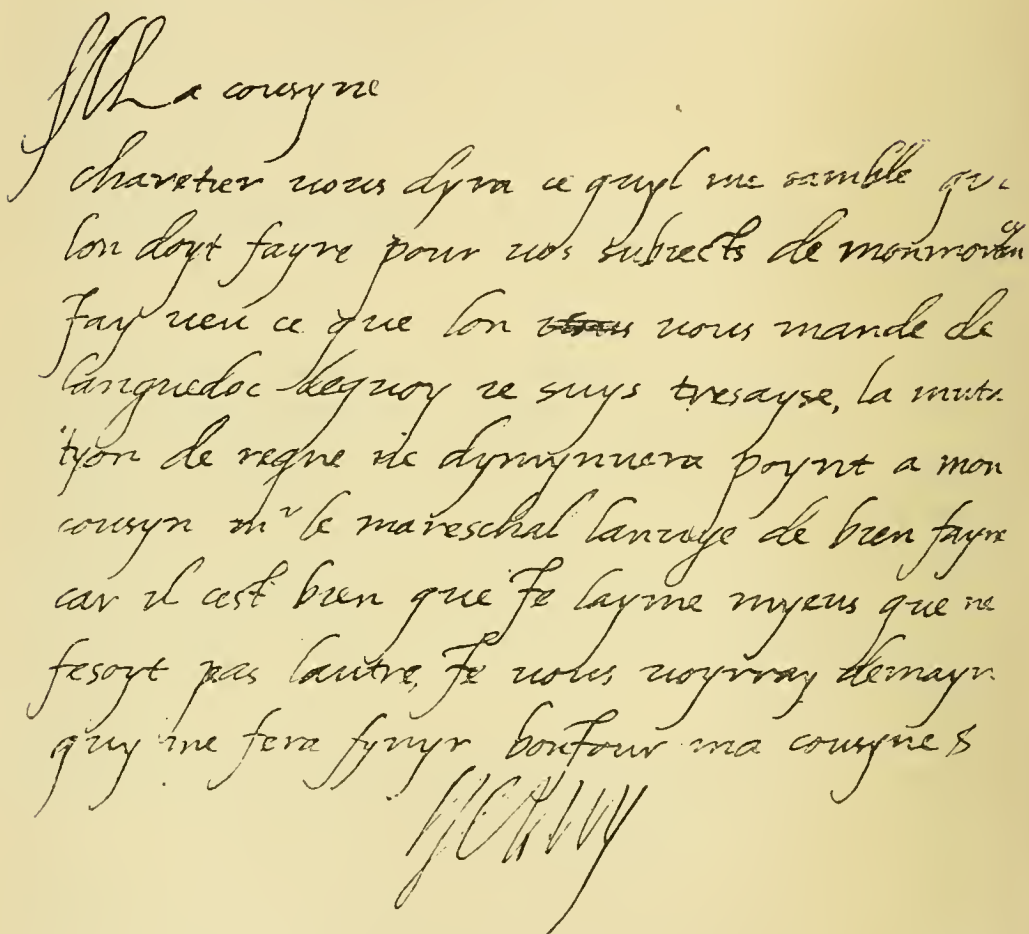 Ma cousyne
charetier vous dyra ce quyl me samble que
lon doyt fayre pour vos subiects de monmorency
Jay veu ce que lon vous mande de
languedoc dequoy ie suys tresayse, la muta
tyon de regne ne dymynuera poynt a mon
cousyn mr le mareschal lanvye de bien fayre
car il cest bien que Je layme myeus que ne
fesoyt pas lautre, Je vous voyrray demayn
quy me fera fynyr bonJour ma cousyne $
HENRY